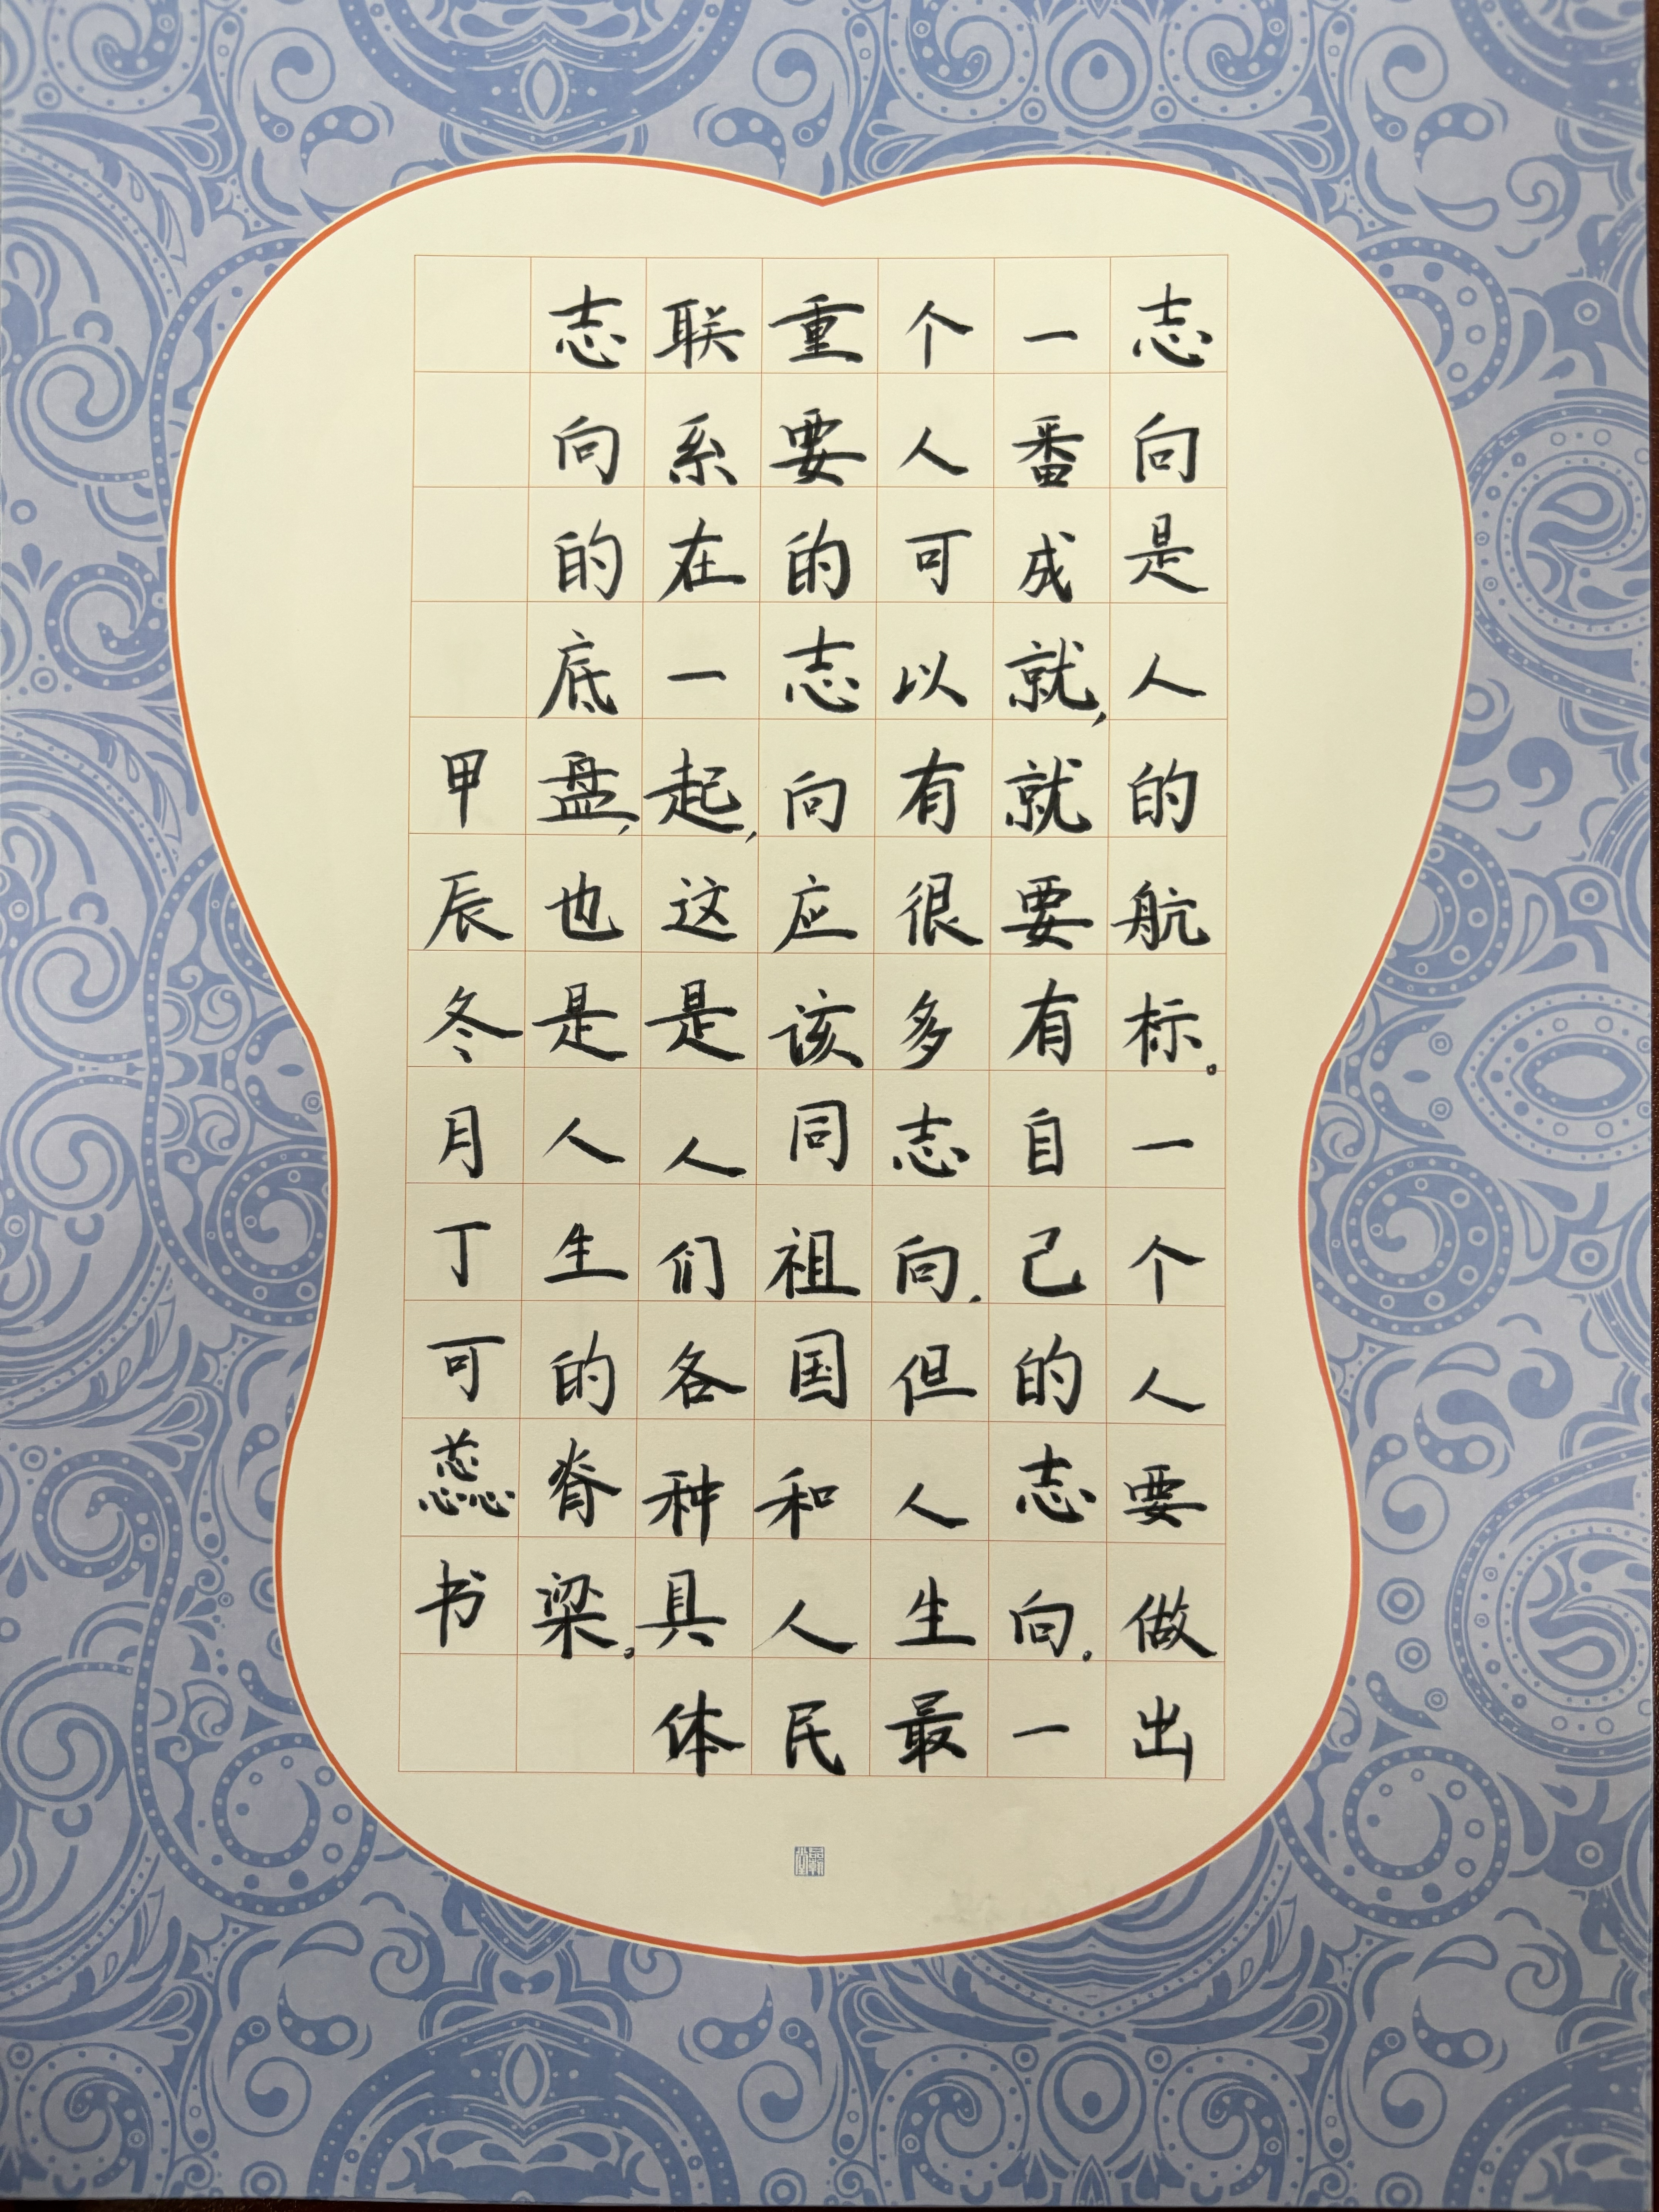 志向是人的航标。一个人要做出
一番成就,就要有自己的志向。一
个人可以有很多志向.但人生最
重要的志向应该同祖国和人民
联系在一起,这是人们各种具体
志向的底盘,也是人生的脊梁。
甲辰冬月丁可蕊书